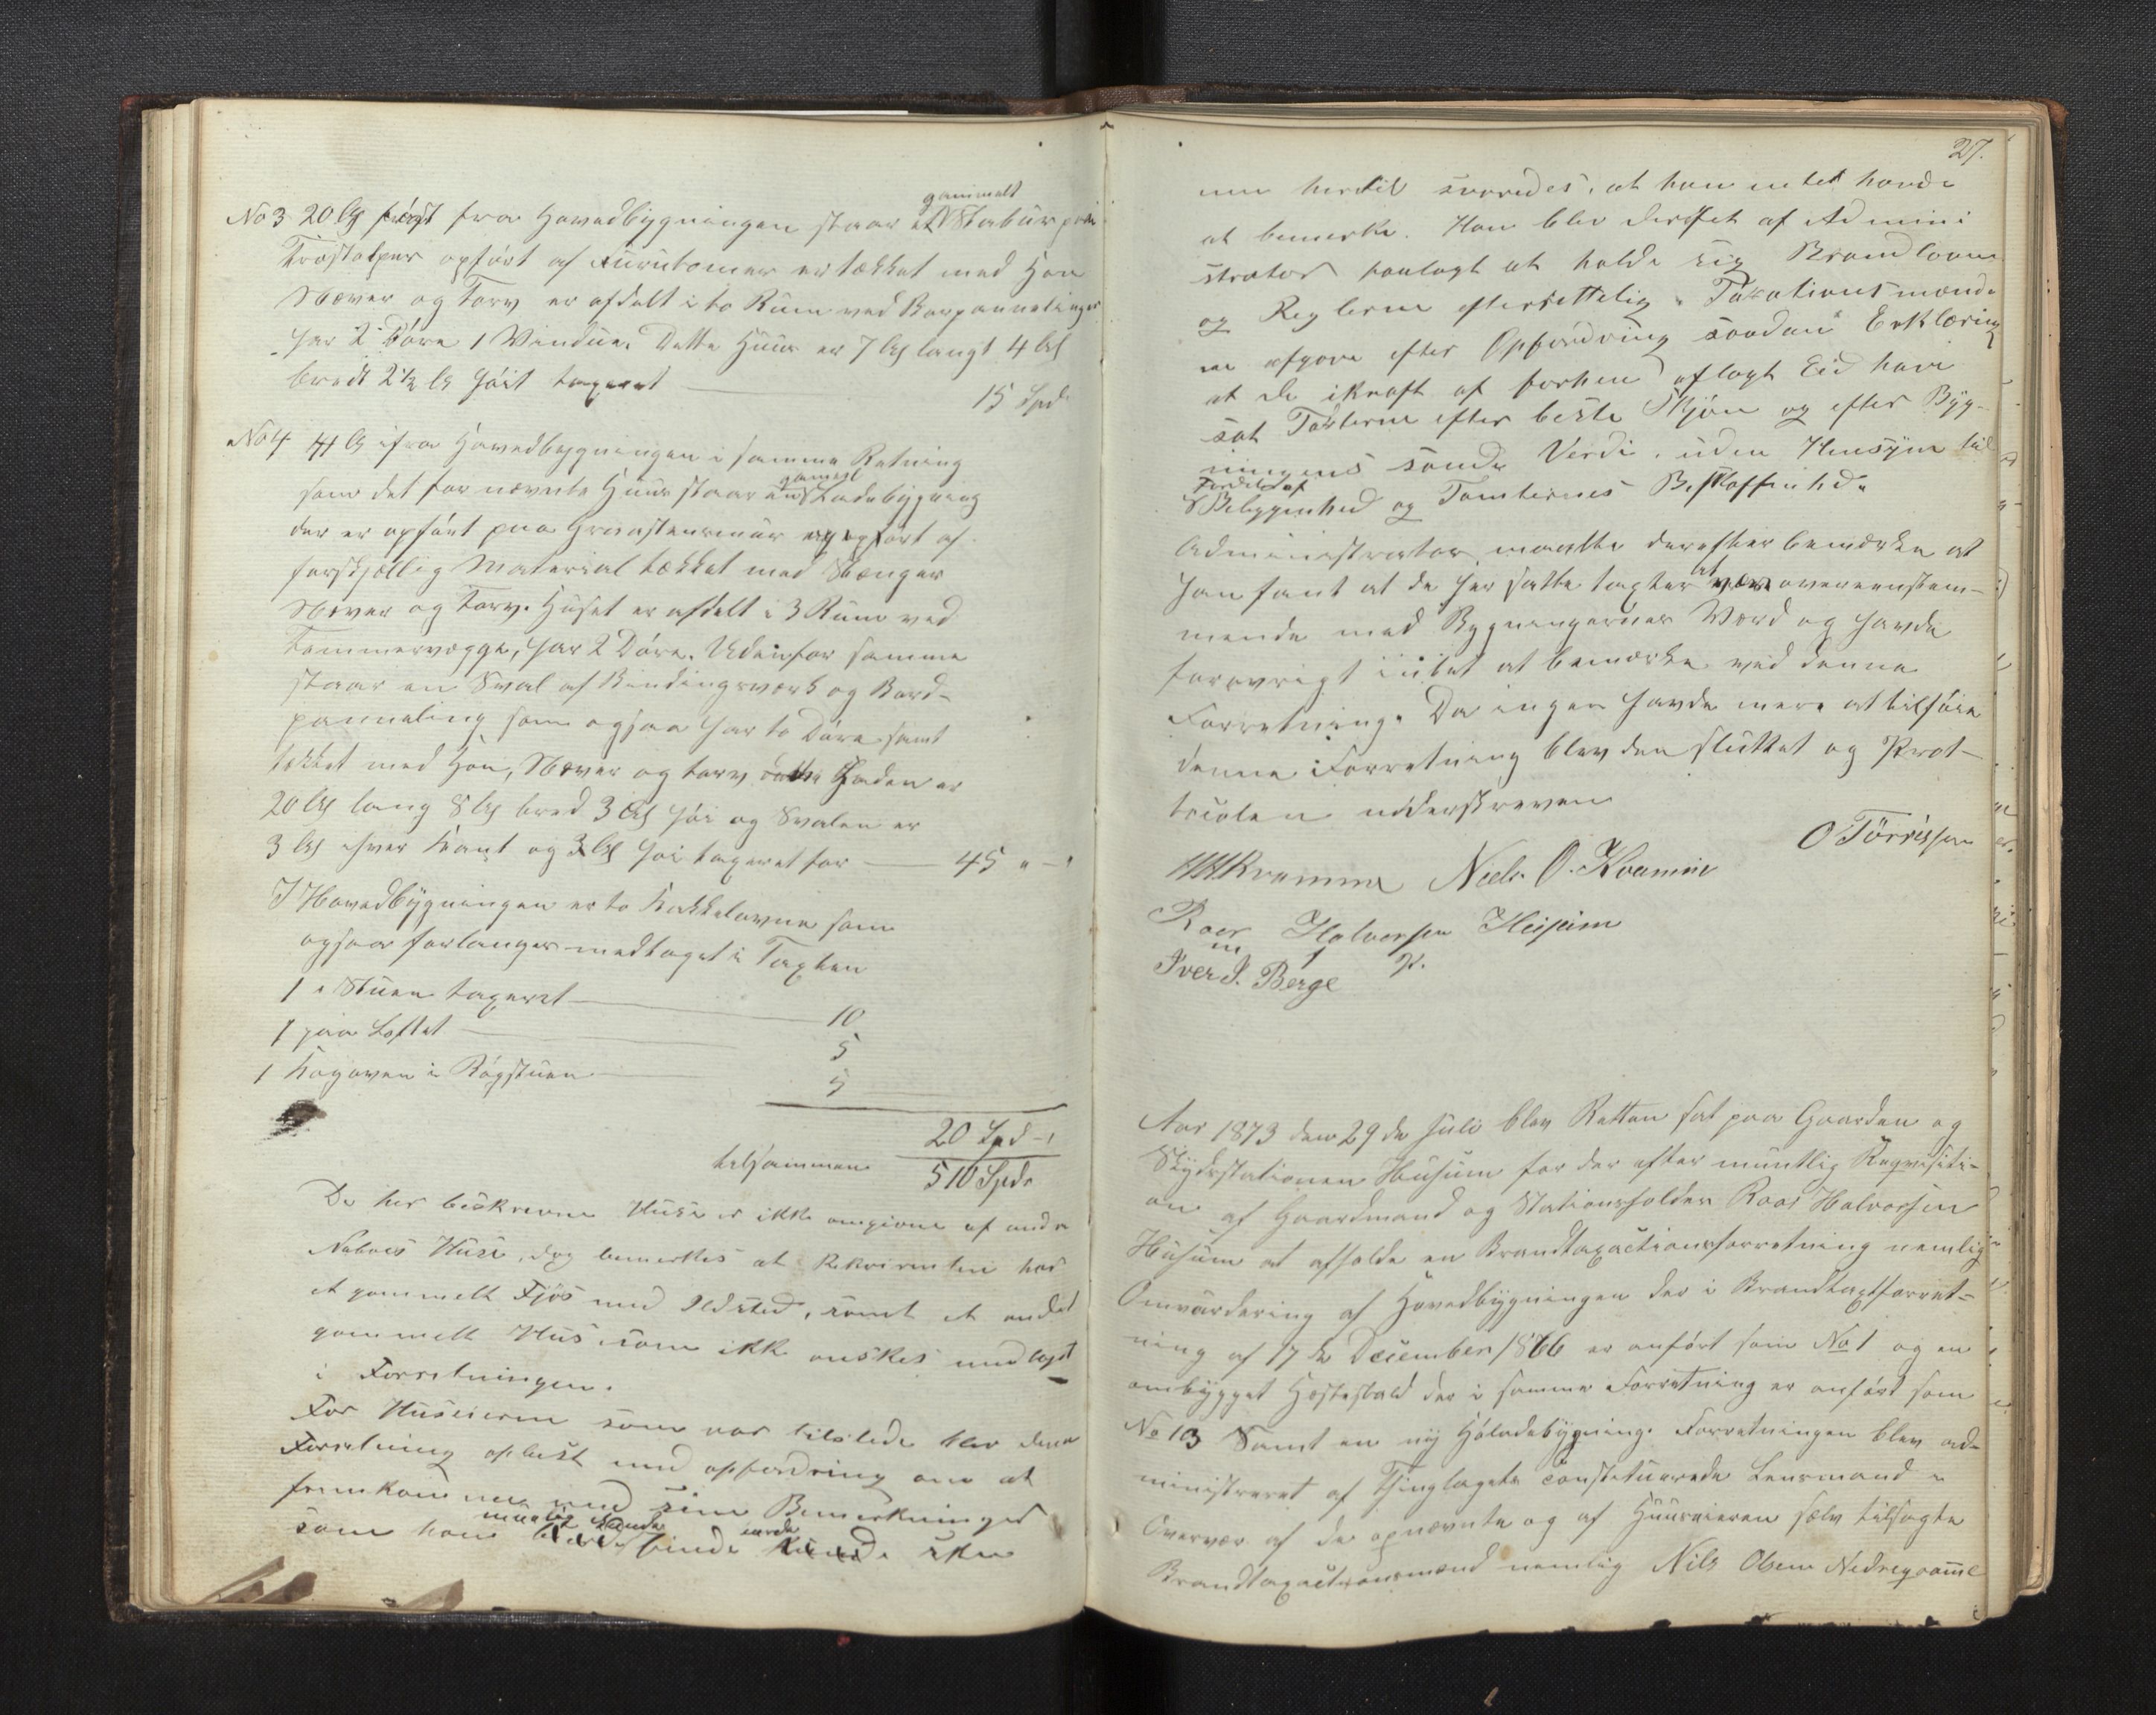 gammelt
No 3 20 Al fra Hovedbygningen staar et Stabur paa
Træstolper opført af Furutømer er tækket med Hon
Næver og Torv er afdelt i to Rum ved Borpanneling
har 2 Døre 1 Vindue. Dette Huus er 7 Al langt 4 Al
bredt 2½ Al høit taxeret 15 Spd
No 4 Al ifra Hovedbygningen i samme Retning
gamel
som det for nævnte Huus staar en Ladebygning
der er opført paa Graastensmur opført af
forskjællig Material tækket med Stænger
Næver og Torv. Huset er afdelt i 3 Rum ved
Tømmervægge, har 2 Døre. Udenfor samme
staar en Sval af Bindingsværk og Bord-
panneling som ogsaa har to Døre samt
tækket med Hon, Næver og torv Laden er
20 Al lang 8 Al bred 3 Al høi og Svalen er
3 Al hver Kant og 3 Al høi taxeret for 45 "
I Hovedbygningen er to Kakkelovne som
ogsaa forlanges medtaget i Taxten
1 i Stuen taxeret 10
1 paa Loftet 5
1 Kogoven i Røgstuen 5
20 Spd
tilsammen 510 Spd.
De her beskrevne Huse er ikke omgivne af andre
Naboes Huse, dog bemerkes at Rekvirenten har
et gammelt Fjøs med Ildsted, samt et andet
gammelt Hus som ikke ønskes medtagt
i Forretningen.
For Huseieren som var tilstede blev denne
Forretning oplæst med opfordring om at
fremkomme med sine Bemerkninger
som han finde
27.
hertil svaredes, at han intet havde
at bemerke. Han blev derefter af Admini
strator paalagt at holde sig Brandlovens
og Reglerne efterrettelig. Taxationsmænde
ne afgave efter Opfordring saadan Erklæring
at de ikraft af forhen aflagt Eid have
sat Taxterne efter beste Skjøn og efter Byg-
ningens sande Verdi, uden Hensyn til
Fordel af
Beliggenhed og Tomternes Beskaffenhed.
Administrator maatte derefter bemærke at
han fant at de her satte taxter at være overeenstem-
mende med Bygningernes Værd og havde
forøvrigt intet at bemærke ved denne
Forretning. Da ingen havde mere at tilføie
denne Forretning blev den sluttet og Prot-
tcolen underskreven
O Tørrissen
Kvamme Niels O. Kvamme
Roar Halvorsen Husum
Iver I. Berge
Aar 1873 den 29de Juli blev Retten sat paa Gaarden og
Skydsstationen Husum for der efter muntlig Reqvisiti-
on af Gaardmand og Stationsholder Roar Halvorsen
Husum at afholde en Brandtaxationsforretning nemlig
Omvurdering af Hovedbygningen der i Brandtaxtforret-
ning af 17de December 1866 er anført som No 1 og en
ombygget Hestestald der i samme Forretning er anført som
No 13 Samt en ny Høladebygning. Forretningen blev ad-
ministreret af Thinglagets constituerede Lensmand
Overvær af de opnævnte og af Huuseieren selv tilsagte
Brandtaxationsmænd nemlig Nils Olsen Nedrequamme